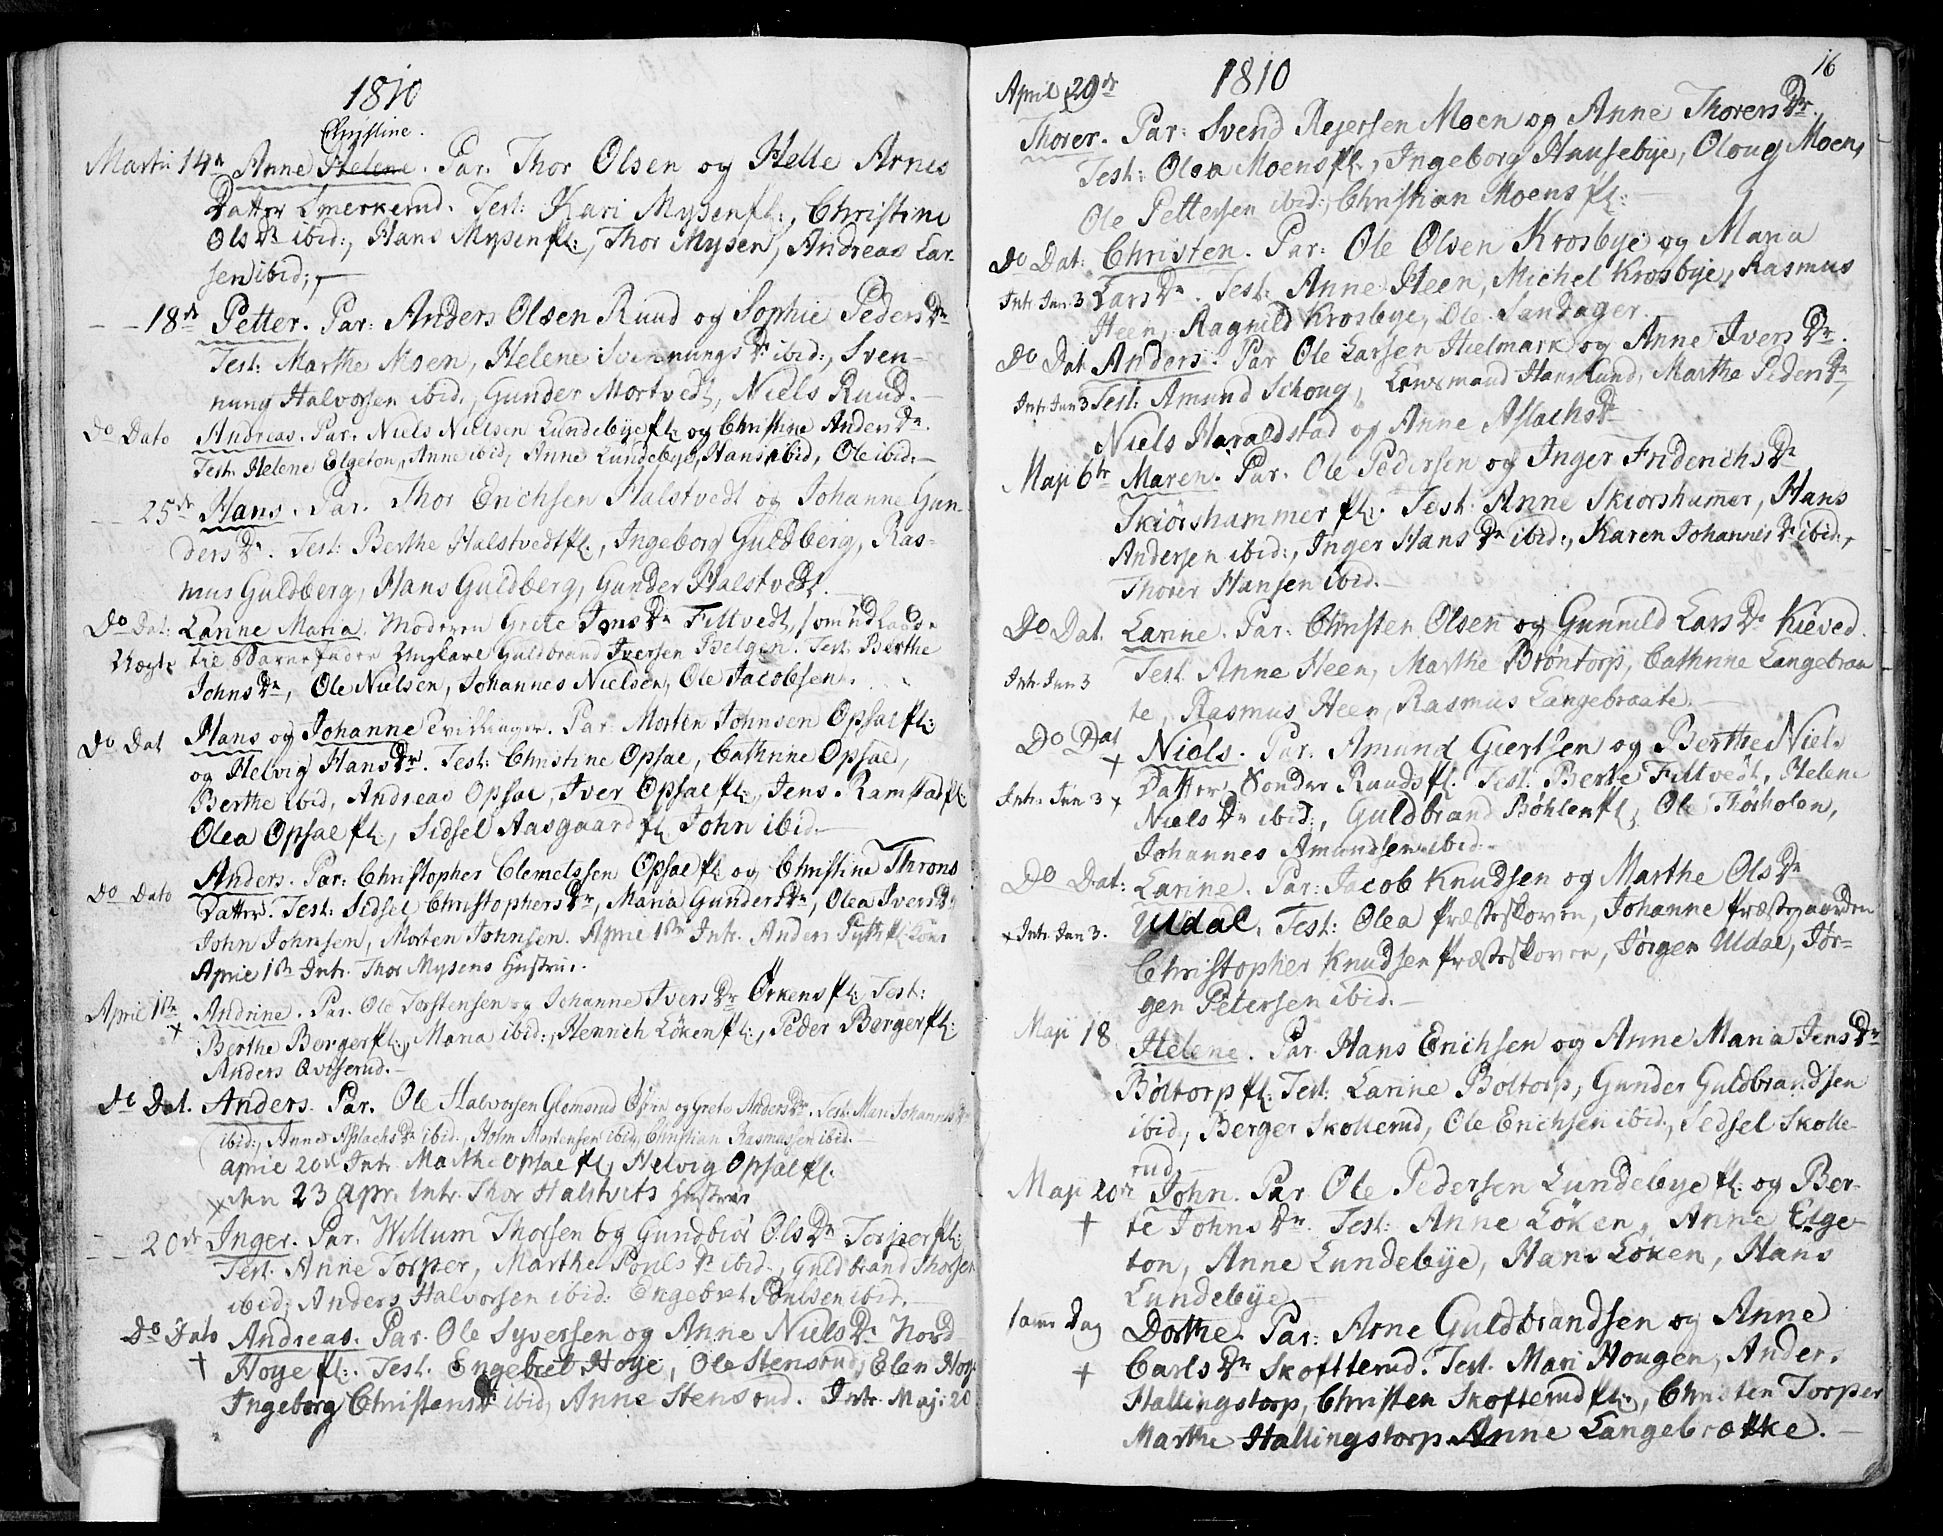 1810
Christine.
Martii 14de Anne Helene. Par. Thor Olsen og Helle Arnes
Datter Smerkerud. Test: Kari Mysen fl:, Christine
Ols Dr ibid:, Hans Mysen fl:, Thor Mysen, Andreas Lar
sen ibid;
18de Petter. Par: Anders Olsen Ruud og Sophie Peders Dr
Test: Marthe Moen, Helene Svennungs Dr ibid:, Sven-
nung Halvorsen ibid, Gunder Mortvedt, Niels Ruud.
Do Dato Andreas. Par. Niels Nielsen Lundebye fl: og Christine Anders Dr.
Test. Helene Elgeton, Anne ibid, Anne Lundebye, Hans ibid, Ole ibid:
25de Hans. Par. Thor Erichsen Halstvedt og Johanne Gun
ders Dr. Test: Berthe Halstvedt fl:, Ingeborg Guldberg, Ras-
mus Guldberg, Hans Guldberg, Gunder Halstvedt.
Do Dat: Larine Maria. Moderen Grete Jons Dr Filtvedt, som udlagde
Uægte til Barnefader Ungkarl Guldbrand Iversen Belgen. Test. Berthe
Johns Dr, Ole Nielsen, Johannes Nielsen, Ole Jacobsen.
Do Dat Hans og Johanne Tvillinger. Par. Morten Johnsen Opsal fl:
og Helvig Hans Dr. Test: Christine Opsal, Cathrine Opsal,
Berthe ibid, Andreas Opsal, Iver Opsal fl:, Jens Ramstad fl
Olea Opsal fl:, Sidsel Aasgaard fl John ibid.
Anders. Par: Christopher Clemetsen Opsal fl: og Christine Throns
Do Dato Datter. Test: Sidsel Christophers Dr, Maria Gunders Dr, Olea Ivers Dr
John Johnsen, Morten Johnsen. April 1ste Intr. Anders fl: Kone
April 1ste Intr. Thor Mysens Hustrue.
April 1ste Andrine. Par. Ole Torstensen og Johanne Ivers Dr Ørkens fl: Test:
x Berthe Berger fl:, Maria ibid:, Henrich Löken fl:, Peder Berger fl:
Anders Qvitserud.
Do Dat. Anders. Par. Ole Halvorsen Glemsrud Østre og Grete Anders Dr. Test: Mari Johannes Dr
ibid:, Anne Aslachs Dr ibid:, Holm Mortensen ibid, Christian Rasmussen ibid.
april 20de Intr. Marthe Opsal fl, Helvig Opsal fl.
x den 23 Apr. Intr. Thor Halstvets Hustrue
20de Inger. Par. Willum Thorsen og Gundbiör Ols Dr Torper fl:
Test. Anne Torper, Marthe Pouls Dr ibid., Guldbrand Thorsen
ibid, Anders Halvorsen ibid: Engebret Poulsen ibid.
Do Dato Andreas. Par. Ole Syversen og Anne Niels Dr Nord
† Hoye fl:. Test. Engebret Hoye, Ole Stensrud, Elen Hoy
Ingeborg Christens Dr ibid, Anne Stensrud. Intr. Maj: 20
16
April 29de 1810
Thorer. Par: Svend Rejersen Moen og Anne Thorers Dr.
Test: Olea Moens fl:, Ingeborg Hausebye, Oloug Moen,
Ole Pettersen ibid:, Christian Moens fl:
Do Dat: Christen. Par: Ole Olsen Krosbye og Maria
Intr. Jun 3 Lars Dr. Test: Anne Heen, Michel Krosbye, Rasmus
Heen, Ragnild Krosbye, Ole Sandager.
Do Dat Anders. Par Ole Larsen Hielmark og Anne Ivers Dr.
Intr. Jun 3 Test: Amund Schoug, Lensmand Hans Lund, Marthe Peders Dr,
Niels Haraldstad og Anne Aslachs Dr
Maji 6te Maren. Par. Ole Pedersen og Inger Friderichs Dr
Skiörshammer fl:. Test: Anne Skiörshamer, Hans
Andersen ibid:, Inger Hans Dr ibid:, Karen Johannes Dr ibid:,
Thorer Hansen ibid.
Do Dat. Larine. Par: Christen Olsen og Gunnild Lars Dr Kieved.
Intr. Jun 3 Test Anne Heen, Marthe Bröntorp, Cathrine Langebraa
te, Rasmus Heen, Rasmus Langebraate
Do Dat
† Niels. Par. Amund Giertsen og Berthe Niels
Intr. Jun 3 x Datter, Sondre Ruuds fl. Test. Berte Filtvedt, Helene
Niels Dr ibid:, Guldbrand Böhlen fl, Ole Thörholen,
Johannes Amundsen ibid.
Do Dat: Larine. Par: Jacob Knudsen og Marthe Ols Dr
x Intr. Jun 3. Udal. Test: Olea Præsteskoven, Johanne Præstegaarden
Christopher Knudsen Præsteskoven, Jörgen Udal, Jör-
gen Petersen ibid.
Maji 18 Helene. Par. Hans Erichsen og Anne Maria Jens Dr
Böltorp fl. Test. Larine Boltorp, Gunder Guldbrandsen
ibid, Berger Skollerud, Ole Erichsen ibid, Sedsel Skolle-
rud,
Maji 20de John. Par Ole Pedersen Lundebye fl: og Ber-
† te Johns Dr. Test: Anne Löken, Anne Elge-
ton, Anne Lundebye, Hans Löken, Hans
Lundebye
samme Dag Dorthe. Par: Arne Guldbrandsen og Anne
† Carls Dr Skoftterud. Test. Mari Hougen, Anders
Hallingstorp, Christen Skofterud fl:, Christen Torper
Marthe Hallingstorp Anne Langebrække.